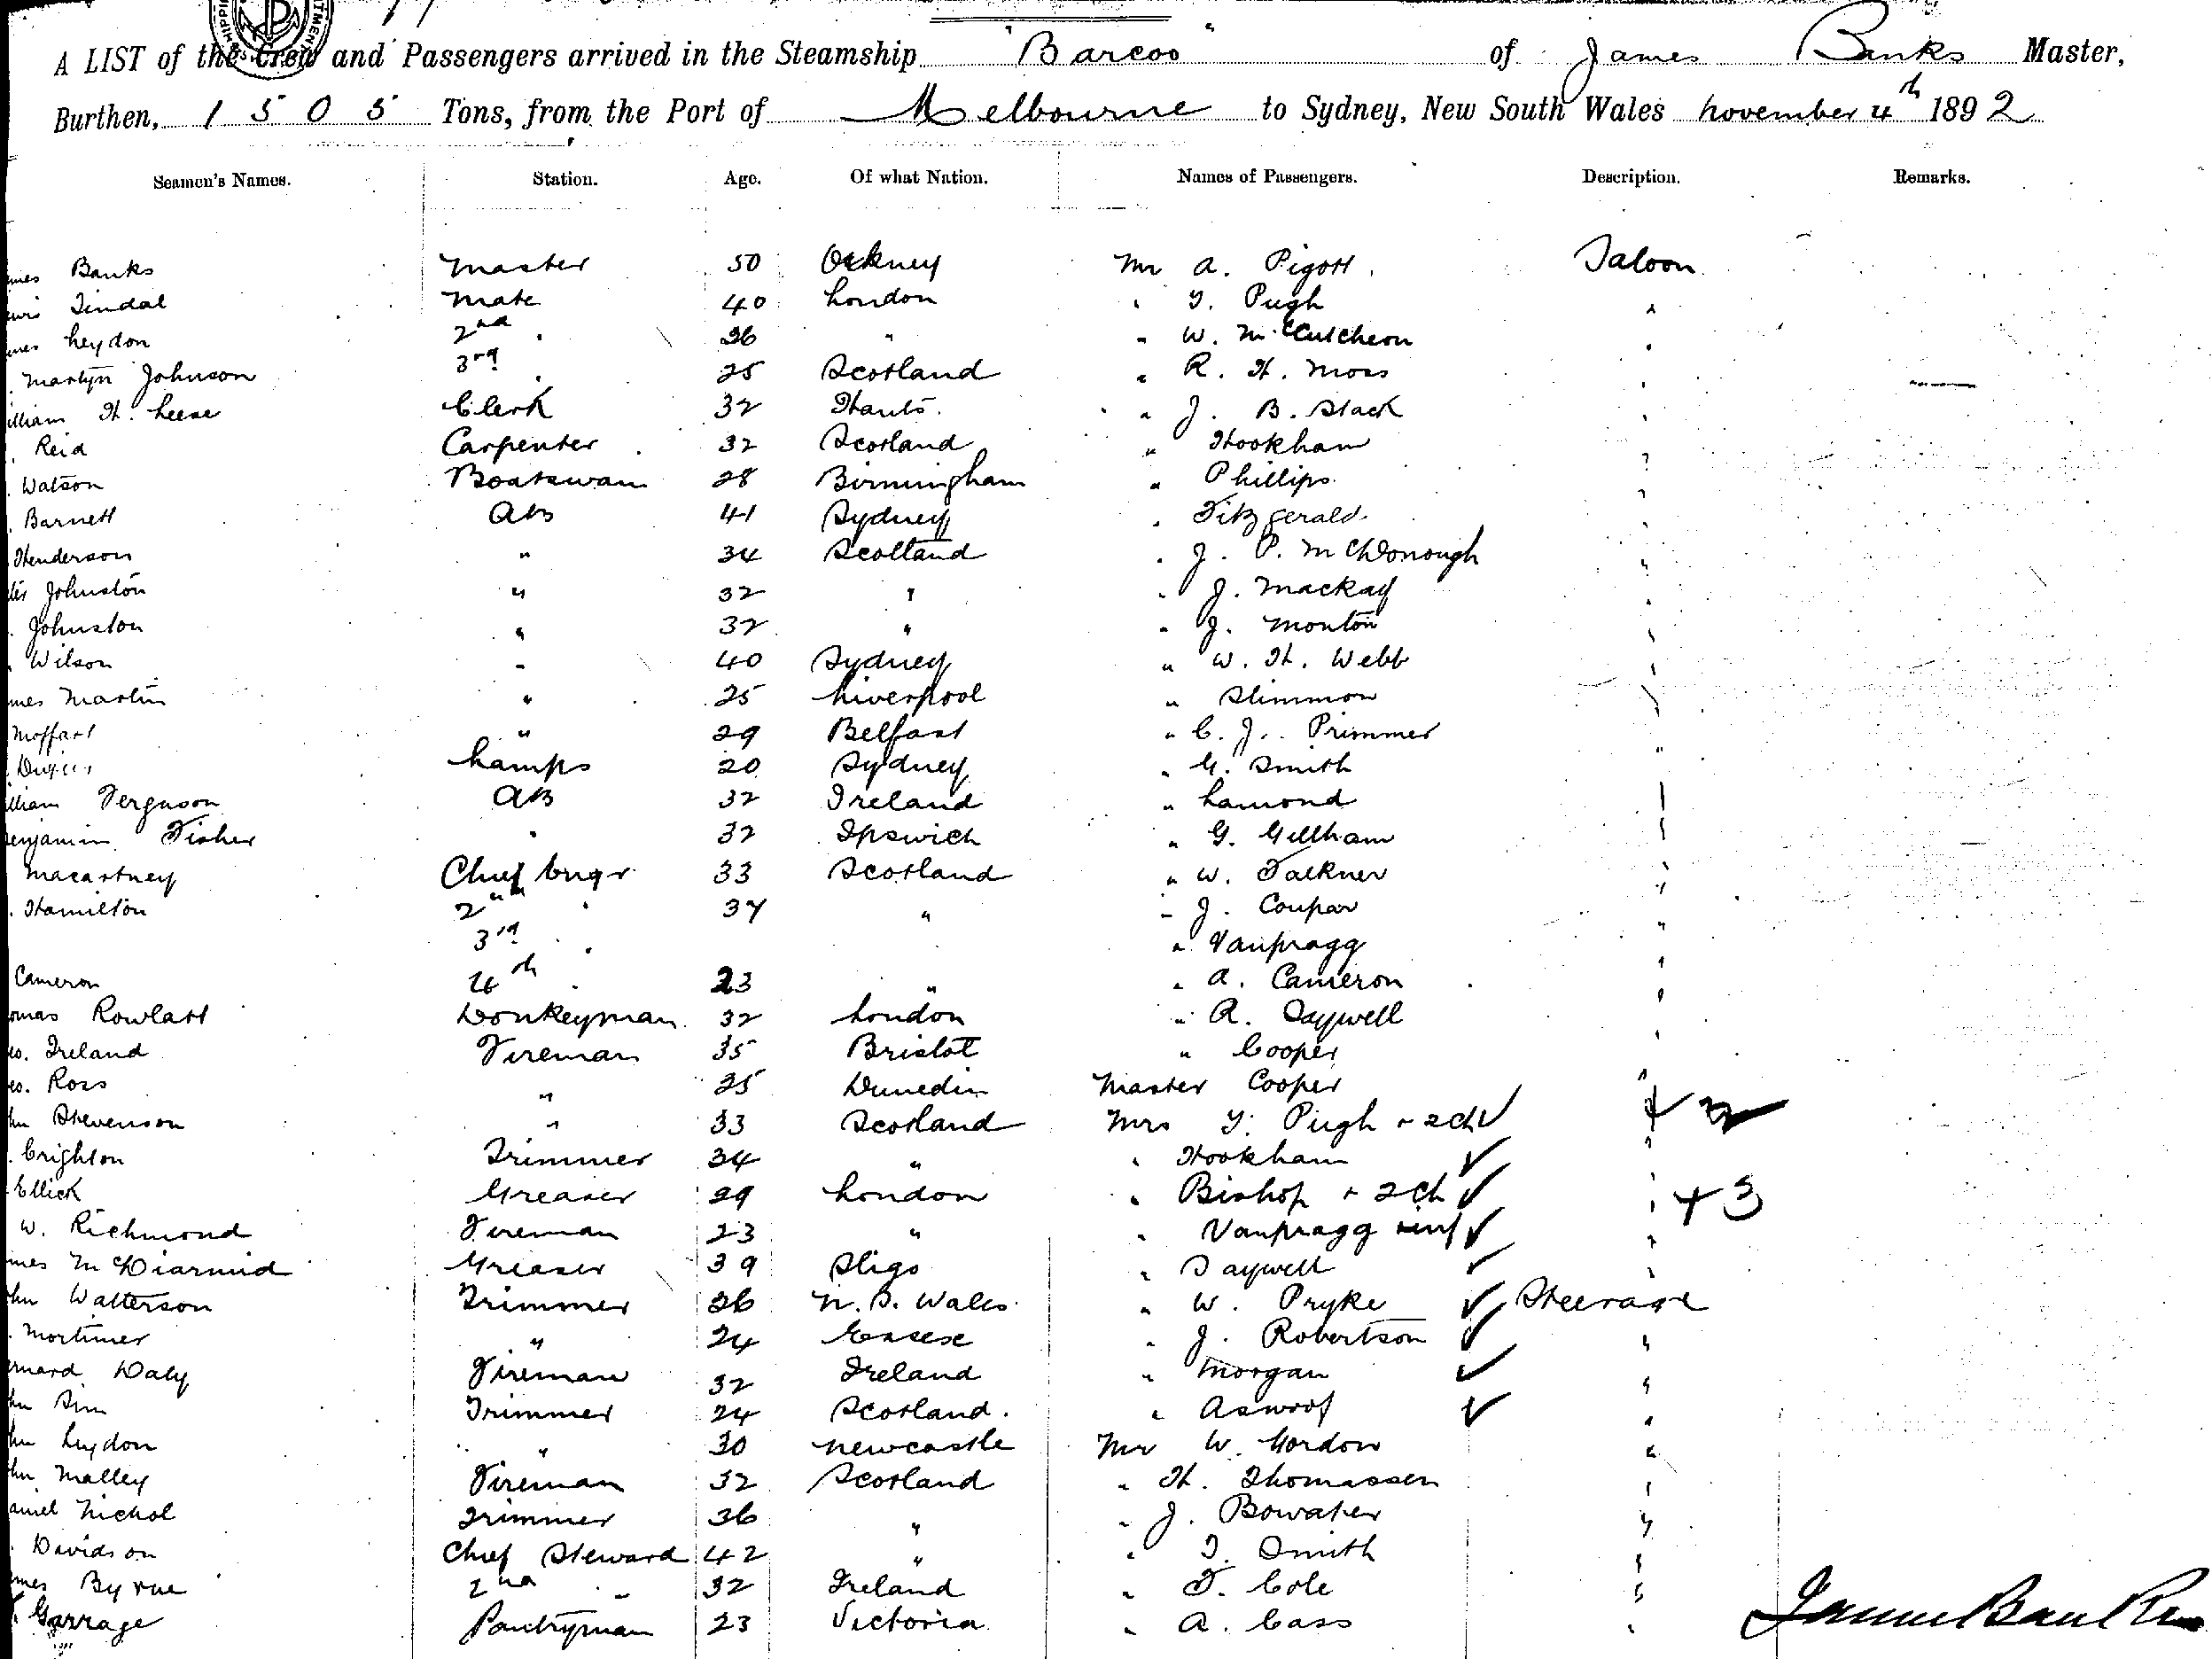 A LIST of the Crew and Passengers arrived in the Steamship "Barcoo" of James Banks Master,
Burthen, 1505 Tons, from the Port of Melbourne to Sydney, New South Wales November 4th 1892
Seamen's Names. Station. Age. Of what Nation. Names of Passengers. Description. Remarks.
mes Banks Master 50 Orkney Mr A. Pigott Saloon
Tindal Mate 40 London " Pugh "
mes Leydon 2nd " 26 " " W. McCutcheon "
Martyn Johnson 3rd " 25 Scotland " R. H. Moss "
illiam H. Leese Clerk 32 Hants. " J. B. Slack "
Reid Carpenter 32 Scotland " Hookham "
Watson Boatswain 28 Birmingham " Phillips "
Barnett AB 41 Sydney " Fitzgerald "
Henderson " 34 Scotland " J. P. McDonough "
Johnston " 32 " " J. Mackay "
Johnston " 32 " " J. Monton "
Wilson " 40 Sydney " W. H. Webb "
mes Martin " 25 Liverpool " Slimmon "
Moffatt " 29 Belfast " C. J. Primmer "
Lamps 20 Sydney " G. Smith "
illiam Ferguson AB 32 Ireland " Lamond "
enjamin Fisher " 32 Ipswich " G. Gillham "
Macartney Chief Engr 33 Scotland " W. Falkner "
Hamilton 2nd " 37 " " J. Coupar "
3rd " " " Vanpragg "
Cameron 4th " 23 " " A. Cameron "
omas Rowlatt Donkeyman 32 London " R. Saywell "
eo. Ireland Fireman 35 Bristol " Cooper "
eo. Ross " 25 Dunedin Master Cooper "
hn Stevenson " 33 Scotland Mrs Pugh + 2 ch "
Crighton Trimmer 34 " " Hookham "
Ellick Greaser 29 London " Bishop + 2 ch " + 3
W. Richmond Fireman 23 " " Vanpragg + inf "
mes McDiarmid Greaser 39 Sligo " Saywell "
hn Watterson Trimmer 26 N. S. Wales " W. Pryke Steerage
Mortimer " 24 Essex " J. Robertson "
ernard Daly Fireman 32 Ireland " Morgan "
hn Sim Trimmer 24 Scotland "
hn Leydon " 30 Newcastle Mr W. Gordon "
hn Malley Fireman 32 Scotland " H. Thomassen "
aniel Nichol Trimmer 36 " " J. Bowater "
Davidson Chief Steward 42 " " T. Smith "
mes Byrne 2nd " 32 Ireland " F. Cole "
Garrage Pantryman 23 Victoria " A. Cass "
James Banks